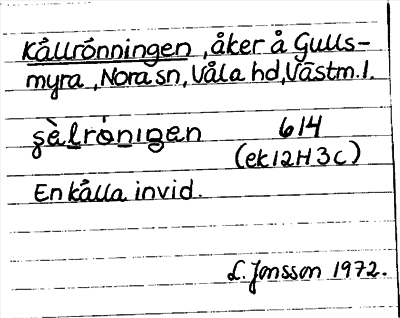 Kållrönningen, åker å Gulls-
myra, Nora sn, Våla hd, Västm. l.
614
(ek 12H 3c)
En kålla invid.
L. Jonsson 1972.